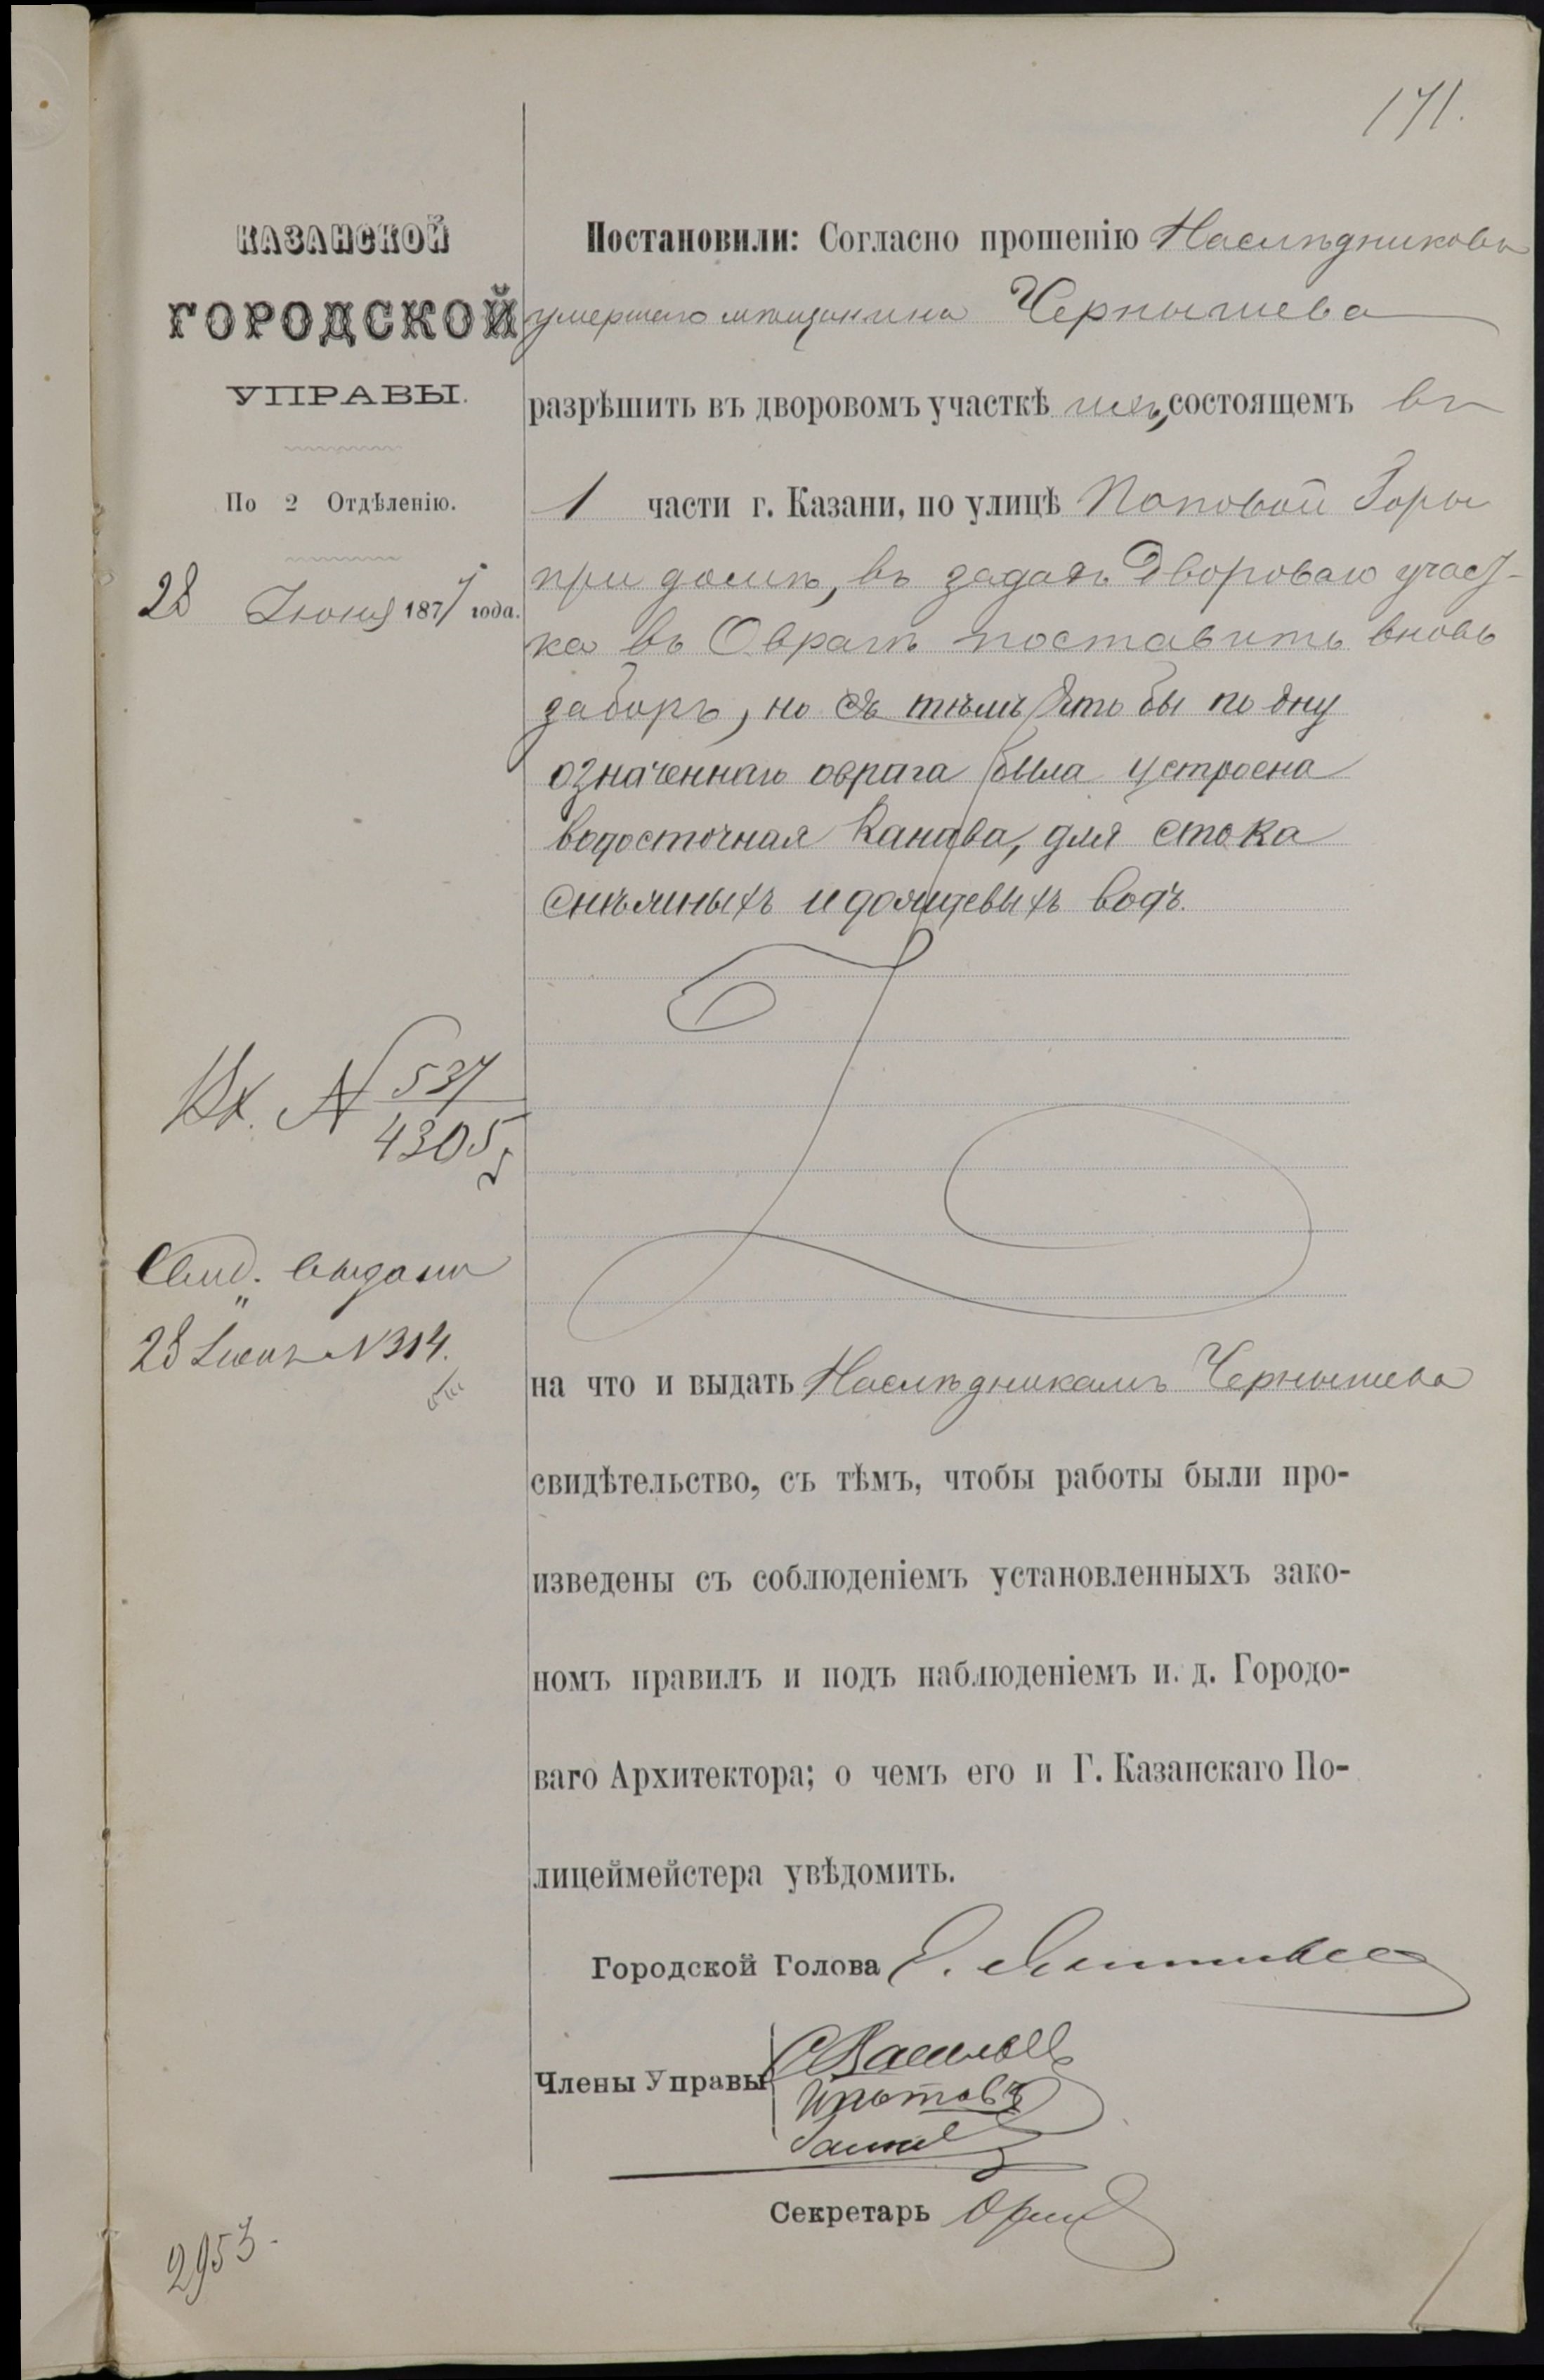 171.
КАЗАНСКОЙ
ГОРОДСКОЙ
УПРАВЫ.
По 2 Отдѣленію.
28 Іюня 1877 года.
Вх. № 537
4305
Свид. выдано
28 Іюня № 314.
2953.
Постановили: Согласно прошенію Наслѣдниковъ
умершаго мѣщанина Чернышева
разрѣшить въ дворовомъ участкѣ ихъ, состоящемъ въ
1 части г. Казани, по улицѣ Поповой Горы
при домѣ, въ задахъ дворового участ-
ка въ Оврагѣ поставить вновь
заборъ, но съ тѣмъ что бы по дну
означеннаго оврага была устроена
водосточная Канава, для стока
снѣжныхъ и дождевыхъ водъ.
на что и выдать Наслѣдникамъ Чернышева
свидѣтельство, съ тѣмъ, чтобы работы были про-
изведены съ соблюденіемъ установленныхъ зако-
номъ правилъ и подъ наблюденіемъ и. д. Городо-
ваго Архитектора; о чемъ его и Г. Казанскаго По-
лицеймейстера увѣдомить.
Городской Голова
Члены Управы
Секретарь